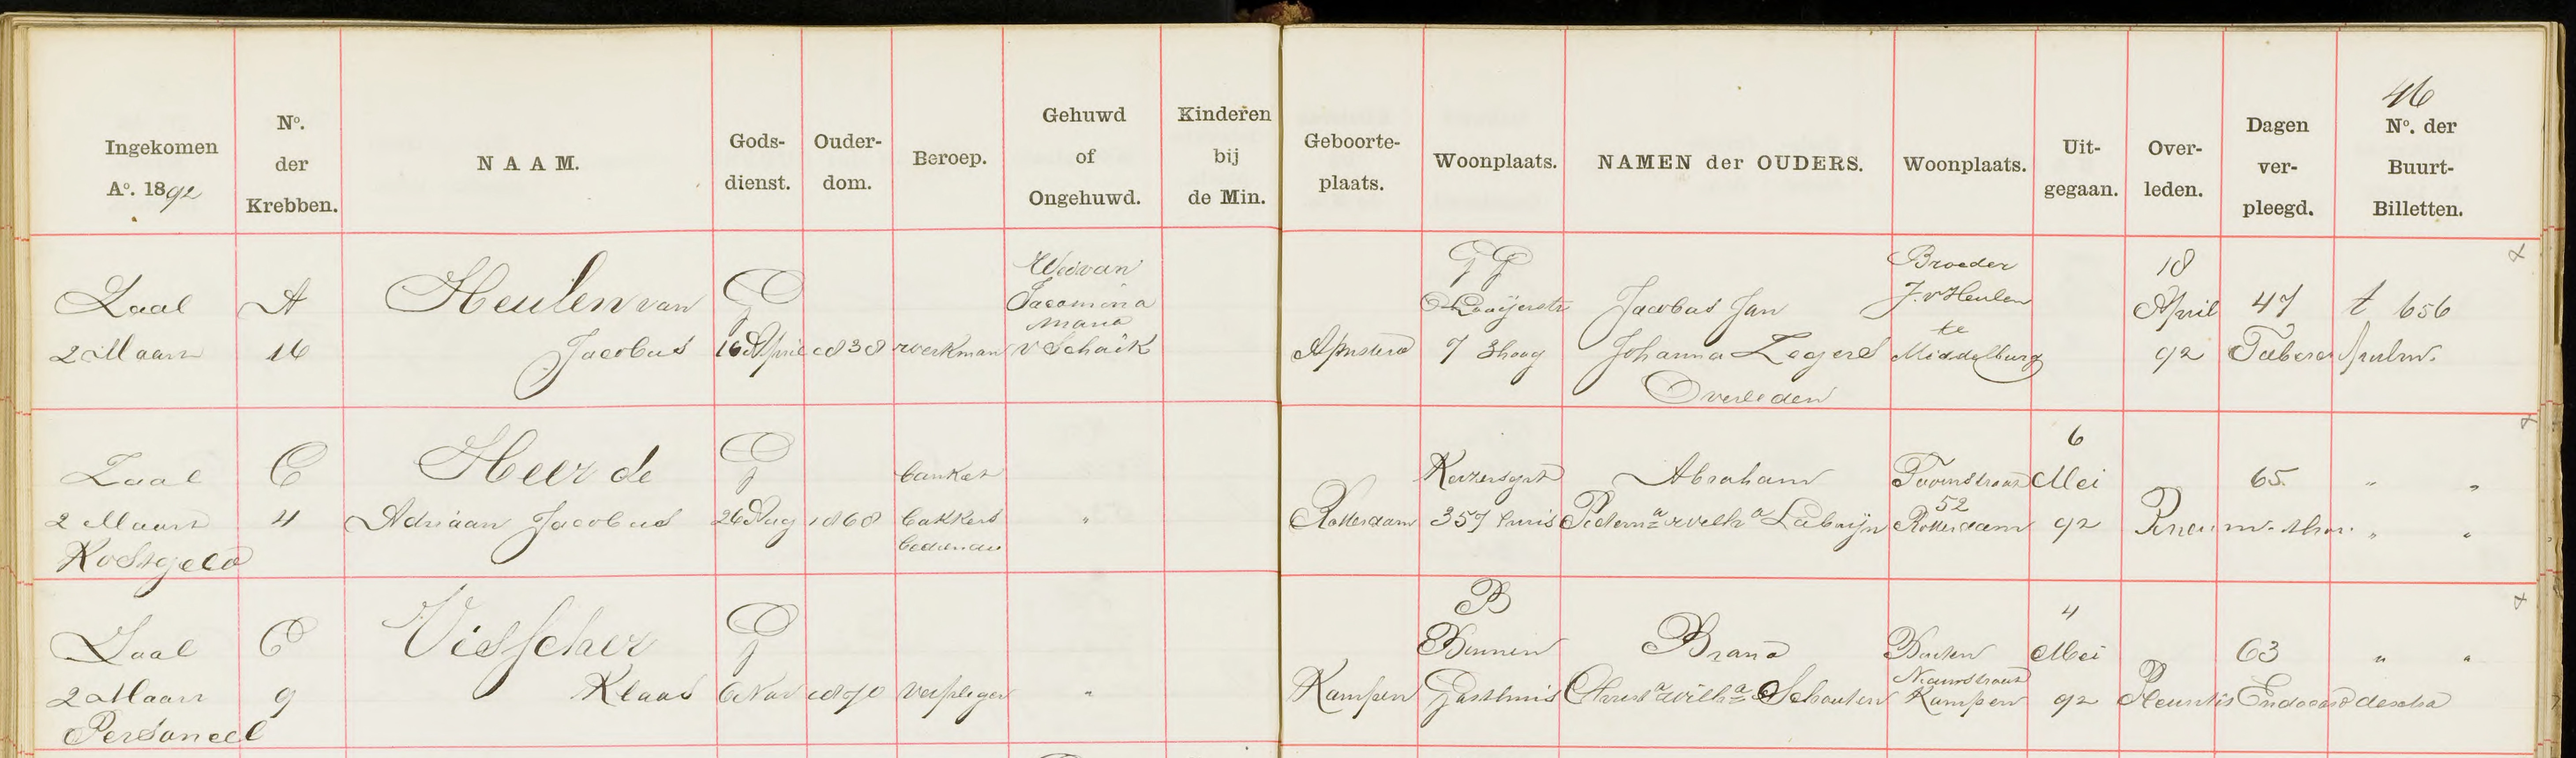 46
Ingekomen Aº. 1892
Nº. der Krebben.
NAAM.
Gods-dienst.
Ouder-dom.
Beroep.
Gehuwd of Ongehuwd.
Kinderen bij de Min.
Geboorte-plaats.
Woonplaats.
NAMEN der OUDERS.
Woonplaats.
Uit-gegaan.
Over-leden.
Dagen ver-pleegd.
Nº. der Buurt-Billetten.
Zaal
2 Maart
A
16
Heulen van
Jacobus
G
16 April 1838
werkman
Wed van
Jacomina
Maria
v Schaik
Amsterd
GG
Looijerstr
7 3hoog
Jacobus Jan
Johanna Legers
Overleden
Broeder
J. v Heulen
te
Middelburg
18
April
92
47
Tuberc pulm.
t 656
Zaal
2 Maart
Kostgeld
C
4
Heer de
Adriaan Jacobus
G
26 Aug 1868
banket
bakkers
bediende
"
Rotterdam
Keizersgrt
357 huis
Abraham
Pieterna wilha Labrijn
Torenstraat
52
Rotterdam
6
Mei
92
65.
Pneum. thor.
" "
" "
Zaal
2 Maart
Personeel
C
9
Visscher
Klaas
G
6 Nov 1870
verpleger
"
Kampen
B
Binnen
Gasthuis
Brand
Christa wilha Schouten
Buiten
Nieuwstraat
Kampen
4
Mei
92
63
Pleuritis Endocard dextra
" "